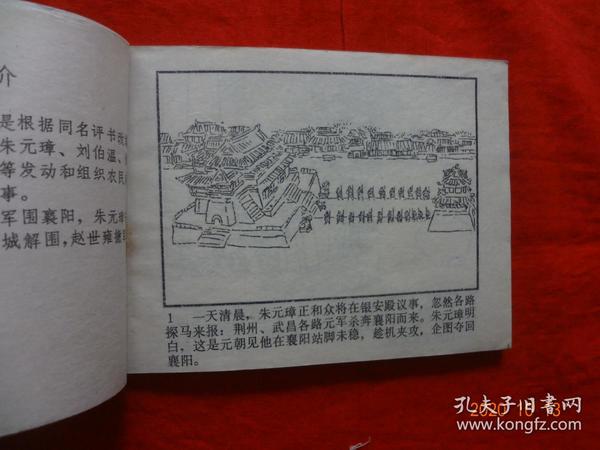 介
是根据同名评书改
朱元璋、刘伯温、
等发动和组织农民
事。
军围襄阳，朱元璋
城解围，赵世雍
1 一天清晨，朱元璋正和众将在银安殿议事，忽然各路
探马来报：荆州、武昌各路元军杀奔襄阳而来。朱元璋明
白，这是元朝见他在襄阳站脚未稳，趁机夹攻，企图夺回
襄阳。
2020 10 13
孔夫子旧书网
www.kongfz.com